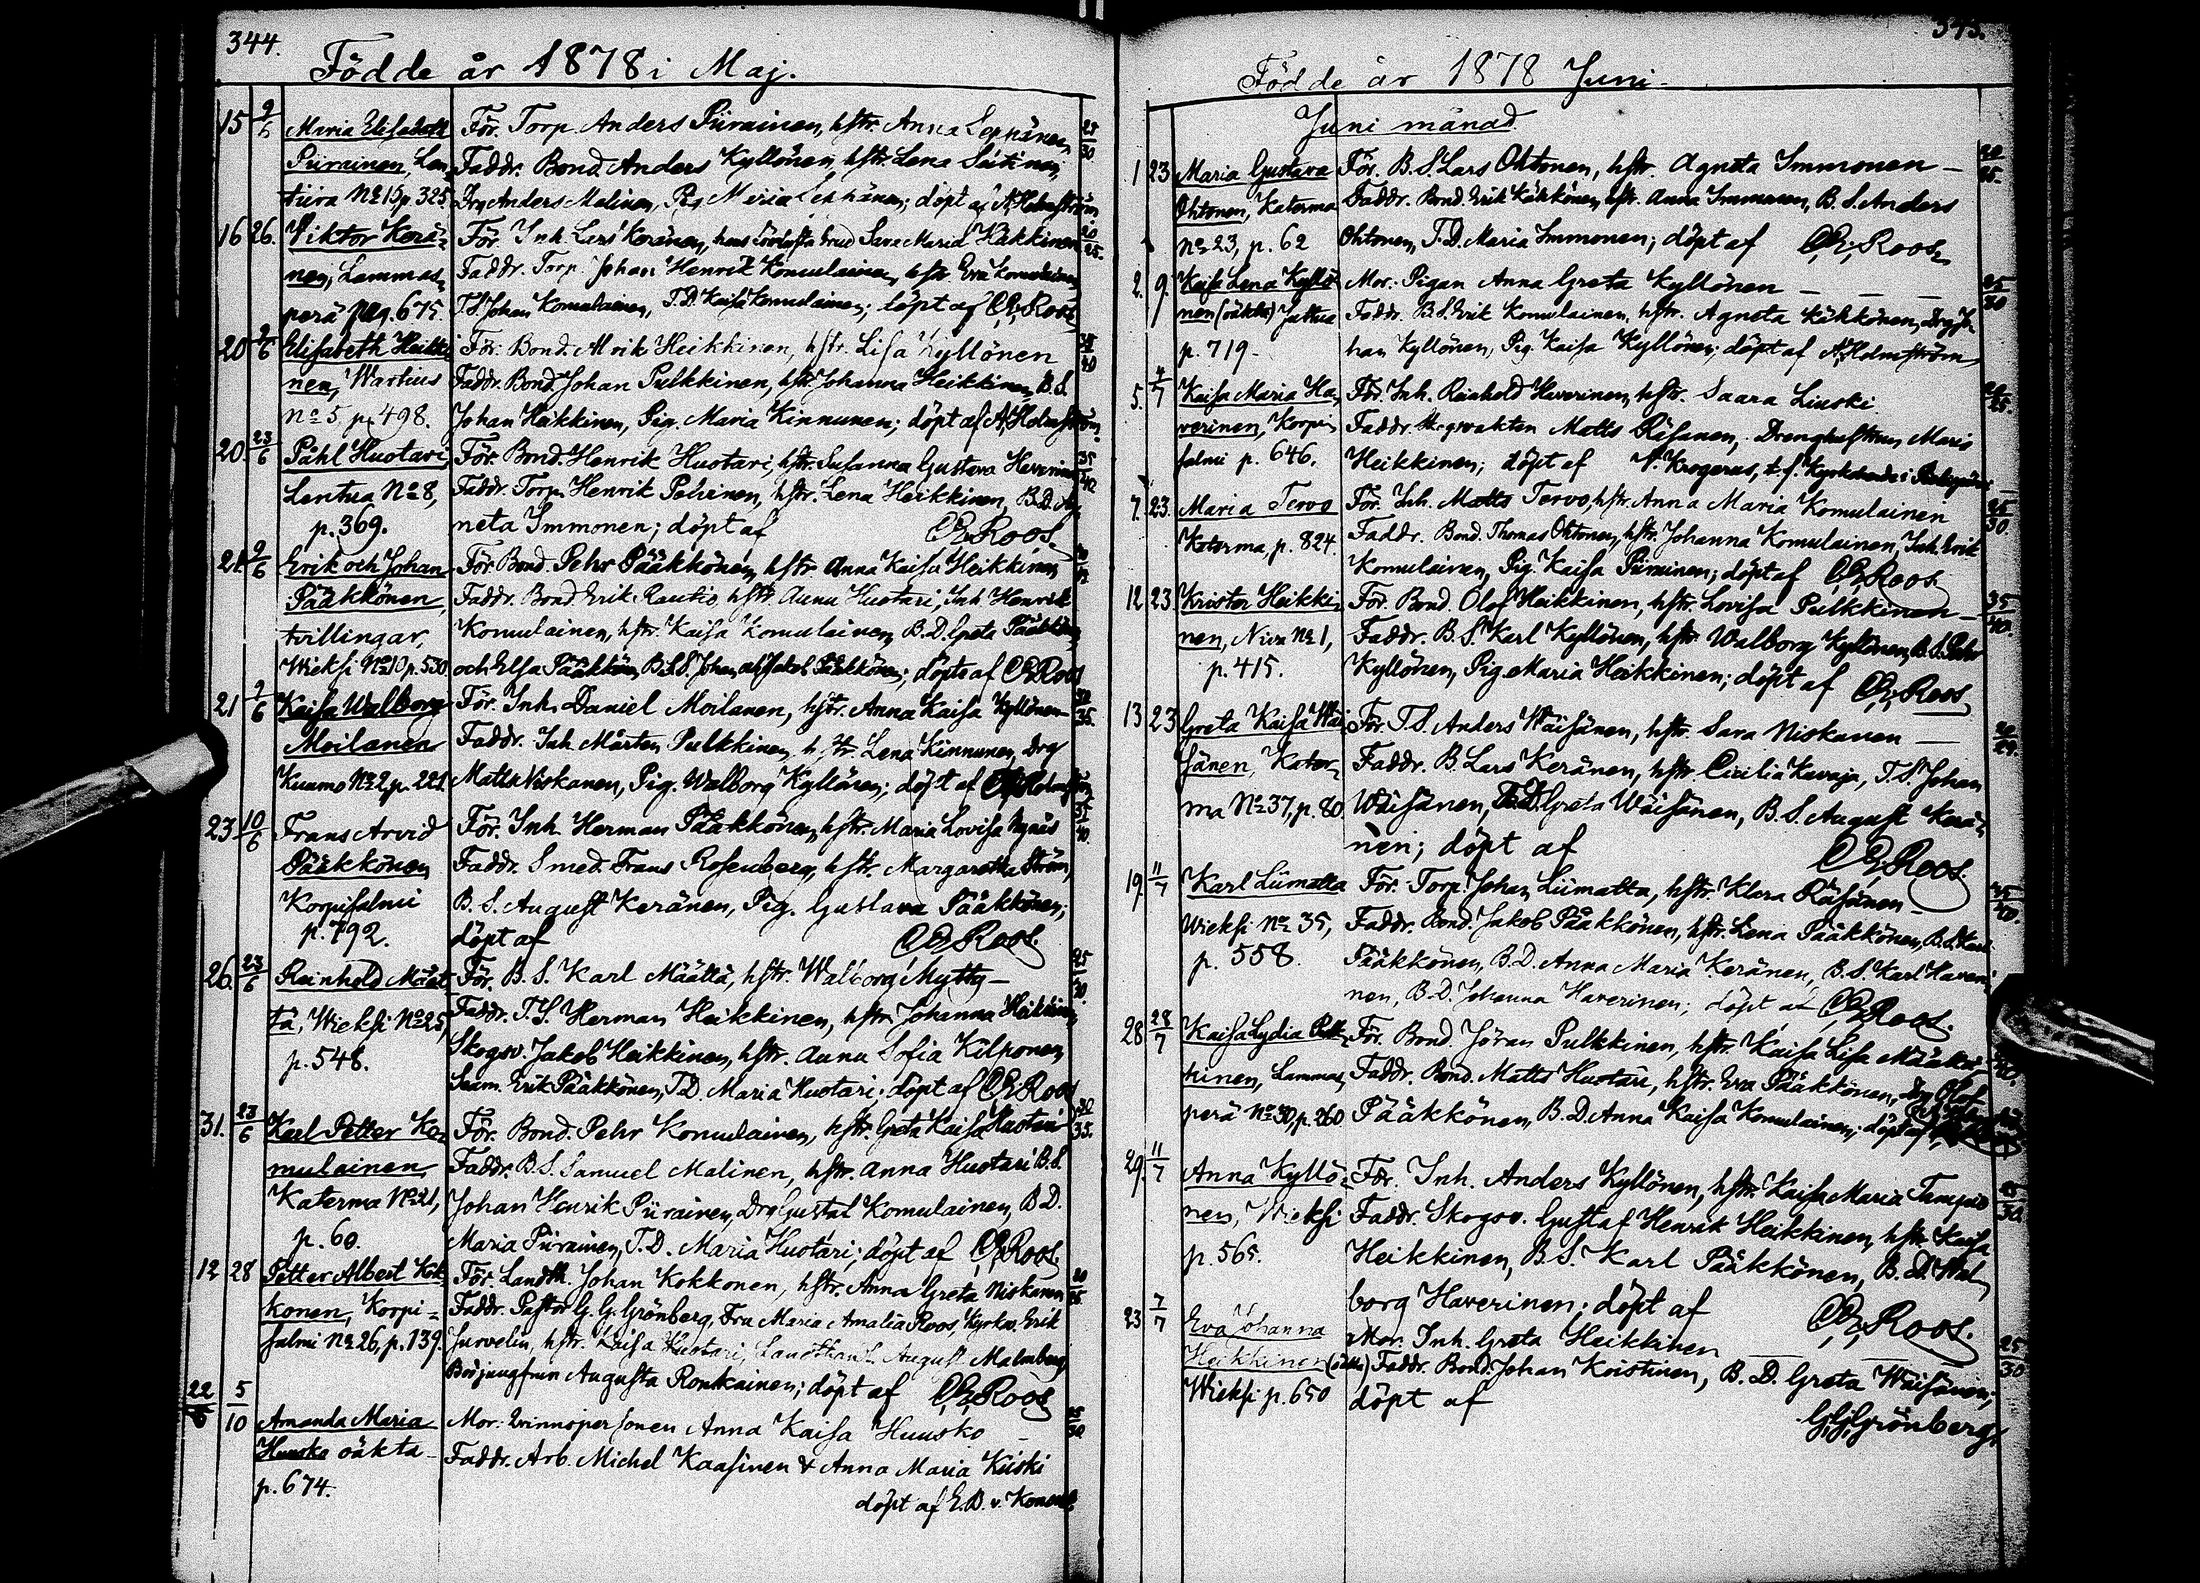 344.
Födde år 1878 i Maj.
15 9/6 Maria Elisabeth För. Torp. Anders Piirainen, hstr. Anna Leppänen 25/30
Piirainen, Len- Faddr. Bond. Anders Kyllönen, hstr. Lena
tiira No 15 p. 325 Drg Anders Malinen, Pig. Maria Leppänen; döpt af A. Holmström
16 26. Viktor Kerä- För. Inh. Lars Keränen, hans trolofvade brud Sara Maria Kähkönen 20/25.
nen, Lammas- Faddr. Torp. Johan Henrik Komulainen, hstr. Eva Komulainen
perä p. 675. T.S. Johan Komulainen, T.D. Kaisa Komulainen; döpt af C.E. Roos
20 9/6 Elisabeth Heikki- För. Bond. Alrik Heikkinen, hstr. Lisa Kyllönen
nen, Wartius Faddr. Bond. Johan Pulkkinen, hstr. Johanna Heikkinen, B.S.
No 5 p. 498. Johan Heikkinen, Pig. Maria Kinnunen; döpt af A. Holmström.
20. 23/6 Påhl Huotari För. Bond. Henrik Huotari, hstr. Susanna Gustava Haverinen 35/40
Lentua No 8, Faddr. Torp. Henrik Polvinen, hstr. Lena Heikkinen, B.D. Ag-
p. 369. neta Immonen; döpt af C.E. Roos
21 9/6 Erik och Johan För. Bond. Pehr Pääkkönen, hstr. Anna Kaisa Heikkinen
Pääkkönen, Faddr. Bond. Erik Rautio, hstr. Anna Huotari, Inh. Henrik
tvillingar, Komulainen, hstr. Kaisa Komulainen, B.D. Greta Pääkkönen
Wieksi No 10 p. 530 och Elsa Pääkkönen, B.S.S. Johan och Jakob Pääkkönen; döpta af C.E. Roos
21 9/6 Kaisa Walborg För. Inh. Daniel Moilanen, hstr. Anna Kaisa Kyllönen 30/35.
Moilanen Faddr. Inh. Mårten Pulkkinen, hstr. Lena Kinnunen, Drg
Kuumo No 2 p. 221. Matts Niskanen, Pig. Walborg Kyllönen; döpt af A. Holmström
23 10/6 Frans Arvid För. Inh. Herman Pääkkönen, hstr. Maria Lovisa Nynäs
Pääkkönen Faddr. Smed. Frans Rosenberg, hstr. Margaretha Ström,
Korpisalmi B.S. August Keränen, Pig. Gustava Pääkkönen;
p. 792. döpt af C.E. Roos.
26. 23/6 Reinhold Määt- För. B.S. Karl Määttä, hstr. Walborg Mytty – 25/30.
tä, Wieksi No 25, Faddr. T.S. Herman Heikkinen, hstr. Johanna Heikkinen,
p. 548. Skogsv. Jakob Heikkinen, hstr. Anna Sofia Kilponen
Erik Pääkkönen, T.D. Maria Huotari; döpt af C.E. Roos
31. 23/6 Karl Petter Ko- För. Bond. Pehr Komulainen, hstr. Greta Kaisa Huotari 30/35.
mulainen Faddr. B.S. Samuel Malinen, hstr. Anna Huotari B.S.
Katerma No 21, Johan Henrik Piirainen, Drg Gustaf Komulainen, B.D.
p. 60. Maria Piirainen, T.D. Maria Huotari; döpt af C.E. Roos.
12 28 Petter Albert Kok- För. Landth. Johan Kokkonen, hstr. Anna Greta Niskanen
konen, Korpi- Faddr. Pastor G.G. Grönberg, Fru Maria Amalia Roos, Kyrkov. Erik
salmi No 26, p. 139. Jurvelin, hstr. Kaisa Huotari, Landthandl. August Malmberg
Bodjungfrun Augusta Ronkainen; döpt af C.E. Roos
22/5 5/10 Amanda Maria Mor: Qvinnspersonen Anna Kaisa Huusko
Huusko oäkta – Faddr. Arb. Michel Kaasinen & Anna Maria Kiiski
p. 674. döpt af E.B. v. Konow.
345.
Födde år 1878 Juni
Juni månad.
1 23 Maria Gustava För. B.S. Lars Ohtonen, hstr. Agneta Immonen –
Ohtonen, Katerma Faddr. Bond. Erik Kähkönen, hstr. Anna Immonen, B.S. Anders
No 23, p. 62 Ohtonen, T.D. Maria Immonen; döpt af C.E. Roos
2. 9. Kaisa Lena Kyllö- Mor: Pigan Anna Greta Kyllönen – – – 25/30
nen (oäkta) Faddr. B.S. Erik Komulainen, hstr. Agneta Kähkönen, Drg Jo-
p. 719. han Kyllönen, Pig. Kaisa Kyllönen; döpt af A. Holmström
5. 4/7 Kaisa Maria Ha- För. Inh. Reinhold Haverinen, hstr. Saara Liuski
verinen, Korpi- Faddr. Skogsvakten Matts Räisänen, Drenghustrun Maria
salmi p. 646. Heikkinen; döpt af Krogerus,
7. 23. Maria Tervo För. Inh. Matts Tervo, hstr. Anna Maria Komulainen 25/30.
Katerma, p. 824. Faddr. Bond. Thomas Ohtonen, hstr. Johanna Komulainen, Inh. Erik
Komulainen, Pig. Kaisa Piirainen; döpt af C.E. Roos
12 23 Kristor Heikki- För. Bond. Olof Heikkinen, hstr. Lovisa Pulkkinen – 35/40.
nen, Niva No 1, Faddr. B.S. Karl Kyllönen, hstr. Walborg Kyllönen, B.S. Pehr
p. 415. Kyllönen, Pig. Maria Heikkinen; döpt af C.E. Roos
13 23 Greta Kaisa Wäi- För. T.S. Anders Wäisänen, hstr. Sara Niskanen –
sänen, Kater- Faddr. B. Lars Keränen, hstr. Cicilia Kavaja, T.S. Johan
ma No 37, p. 80 Wäisänen, T.D. Greta Wäisänen, B.S. August Kerä-
nen; döpt af C.E. Roos.
19. 11/7 Karl Liimatta För. Torp. Johan Liimatta, hstr. Klara Räisänen –
Wieksi No 35, Faddr. Bond. Jakob Pääkkönen, hstr. Lena Pääkkönen, B.S. Karl
p. 558. Pääkkönen, B.D. Anna Maria Keränen, B.S. Karl Haveri-
nen, B.D. Johanna Haverinen; döpt af C.E. Roos.
28 28/7 Kaisa Lydia Pulk- För. Bond. Jöran Pulkkinen, hstr. Kaisa Lisa
kinen, Lammas- Faddr. Bond. Matts Huotari, hstr. Eva Pääkkönen, Drg Olof
perä No 30, p. 260 Pääkkönen, B.D. Anna Kaisa Komulainen; döpt af
29. 11/7 Anna Kyllö- För. Inh. Anders Kyllönen, hstr. Kaisa Maria Tampio 25/30
nen, Wieksi Faddr. Skogsv. Gustaf Henrik Heikkinen, hstr. Kaisa
p. 565. Heikkinen, B.S. Karl Pääkkönen, B.D. Wal-
borg Haverinen; döpt af C.E. Roos.
23 7/7 Eva Johanna Mor: Inh. Greta Heikkinen – – 25/30
Heikkinen (oäkta) Faddr. Bond. Johan Koistinen, B.D. Greta Wäisänen;
Wieksi p. 650 döpt af G.G. Grönberg